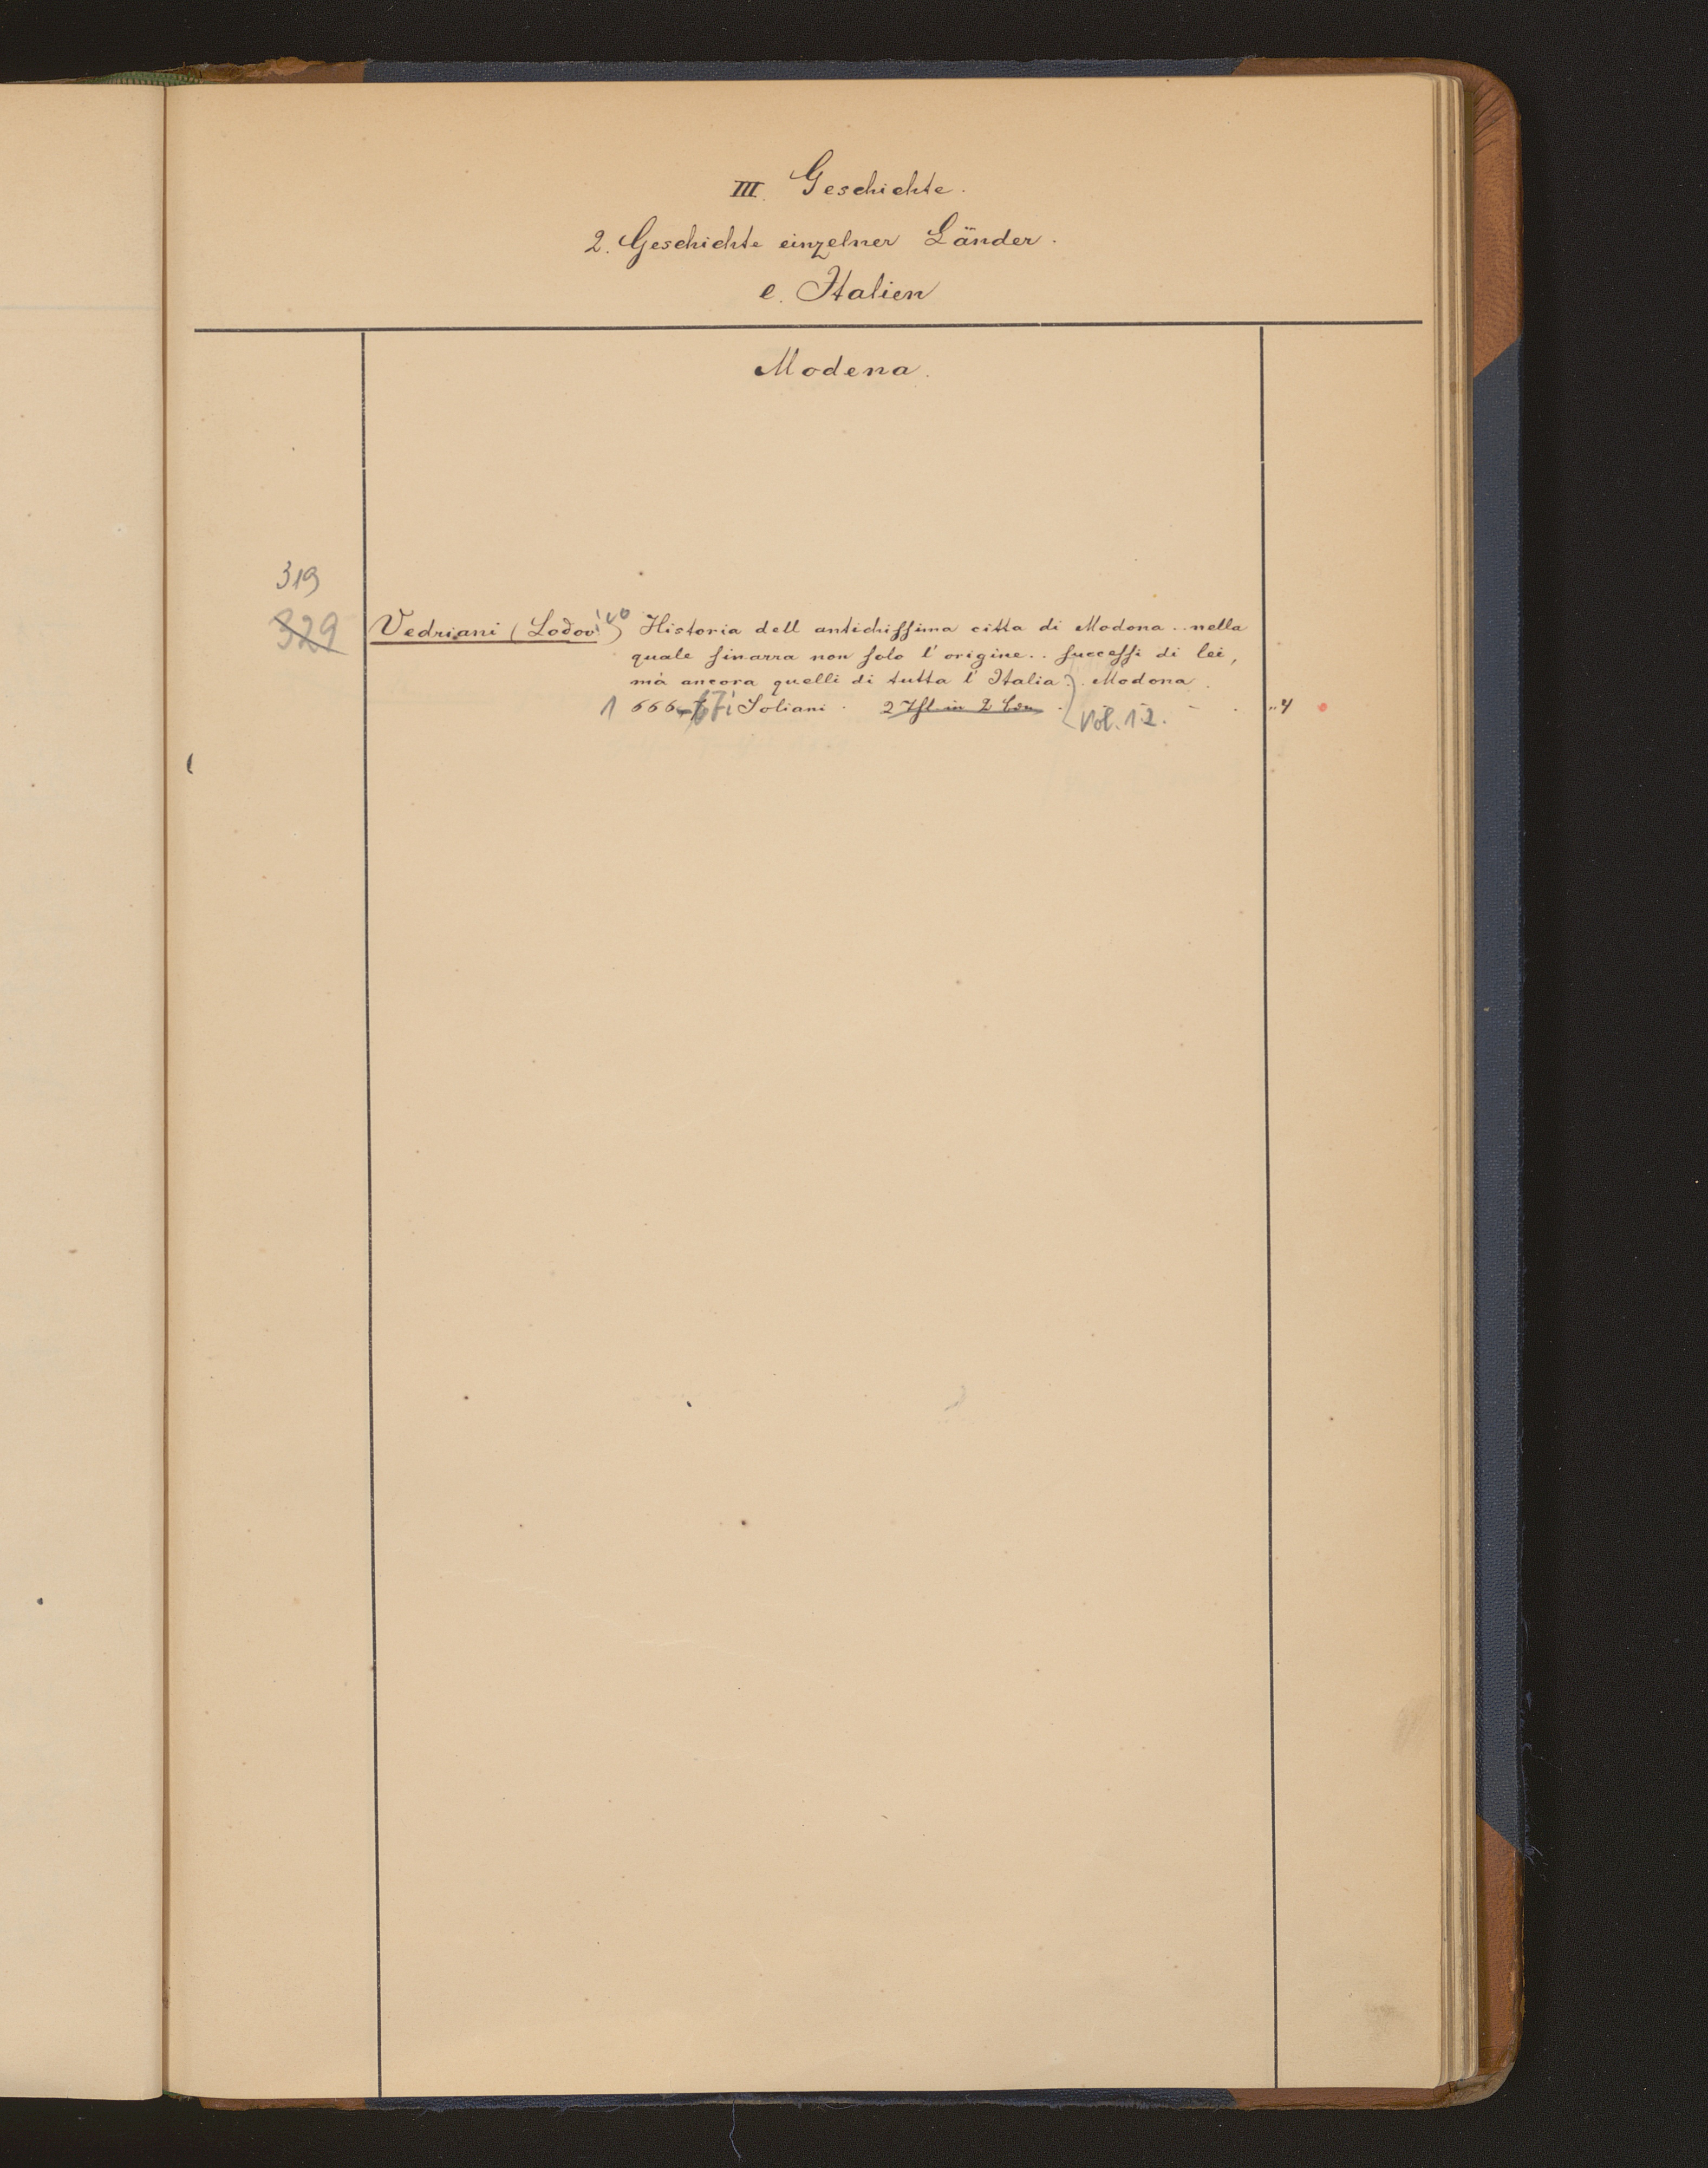 III. Geschichte.
2. Geschichte einzelner Länder.
e. Italien
Modena.
319
329
Vedriani (Lodovico) Historia dell antichissima citta di Modona .. nella
quale sinarra non solo l' origine .. successi di lei,
mà ancora quelli di tutta l' Italia. Modona.
1666-67 Soliani. 2 in 2 Vol. 1 2.
"4